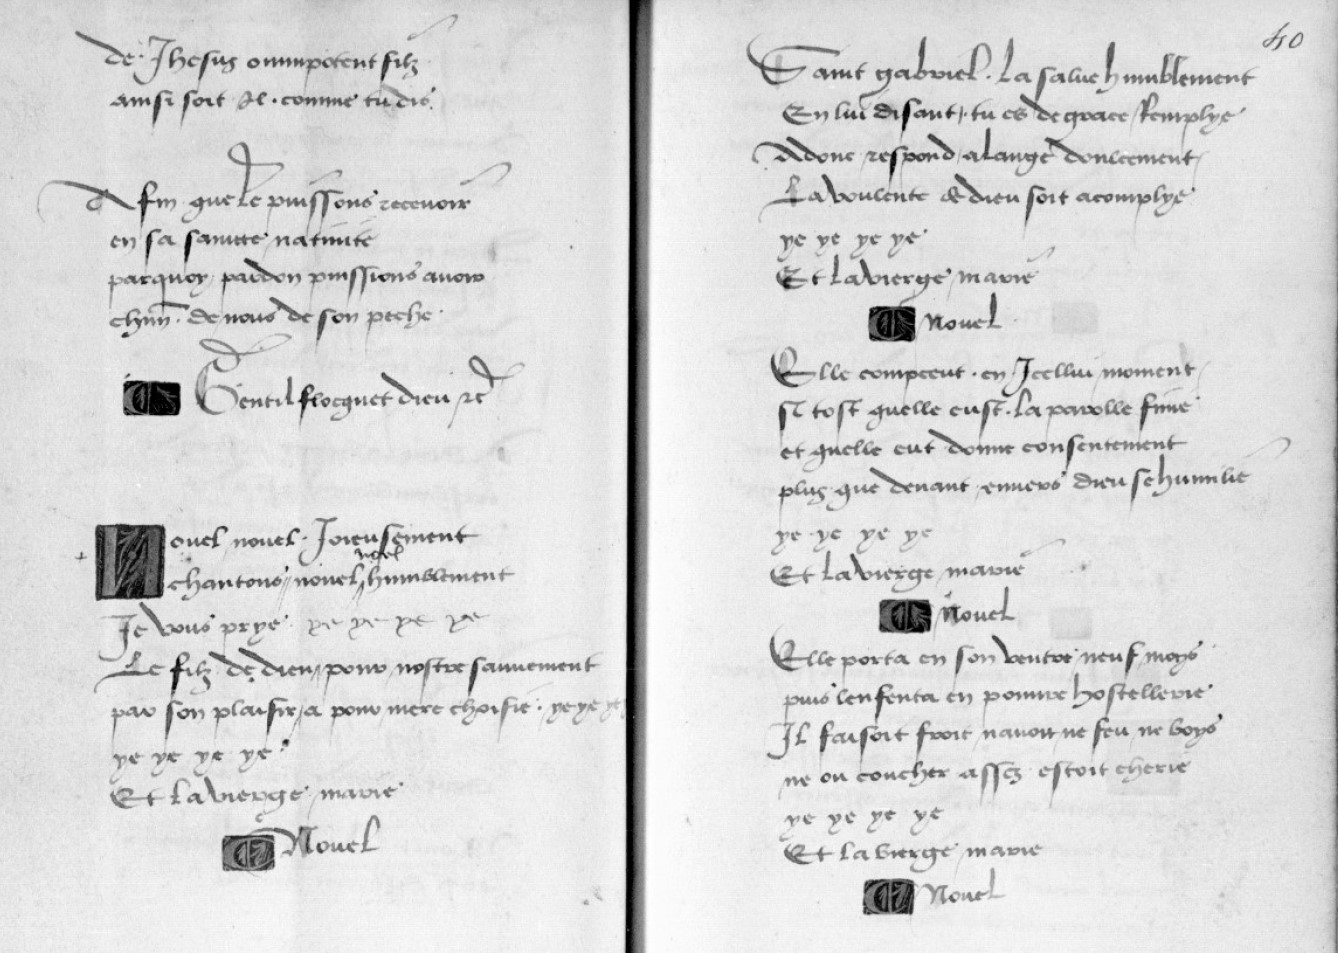 de Jhesus omnipotent filz
ainsi soit il comme tu dis
Afin que le puissons recevoir
en sa saincte nativite
parquoy pardon puissions avoir
chun de nous de son peche
Gentil flocquet dieu &c
Nouel nouel Joieusement
noel
chantons nouel humblement
Je vous prye ye ye ye ye
Le filz de dieu pour nostre sauvement
par son plaisir a pour mere choisie ye ye ye
ye ye ye ye
Et la vierge marie
Nouel
40
Saint gabriel la salue humblement
En lui disant tu es de grace Remplye
Adonc respond a lange doulcement
La voulente de dieu soit acomplye
ye ye ye ye
Et la vierge marie
Nouel
Elle conceut en Jcellui moment
si tost quelle eust la parolle finie
et quelle eut donne consentement
plus que devant envers dieu se humilie
ye ye ye ye
Et la vierge marie
Nouel
Elle porta en son ventre neuf moys
puis lenfenta en pouvre hostellerie
Il faisoit froit navoit ne feu ne boys
ne ou coucher assez estoit cherie
ye ye ye ye
Et la vierge marie
Nouel